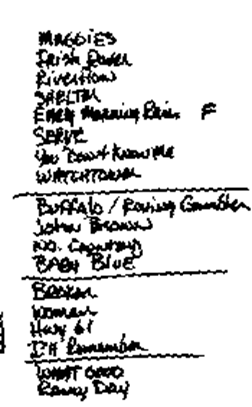 MAGGIES
Irish Rover
RiverFlow
SHELTER
Early Morning Rain F
SERVE
You Don't Know Me
WATCHTOWER
BUFFALO / Roving Gambler
JOHN BROWN
NO. COUNTRY
BABY BLUE
BROKEN
Woman
Hwy 61
I'll Remember
WHAT GOOD
Rainy Day